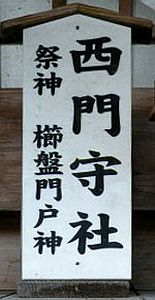 西門守社
祭神 櫛盤門戸神